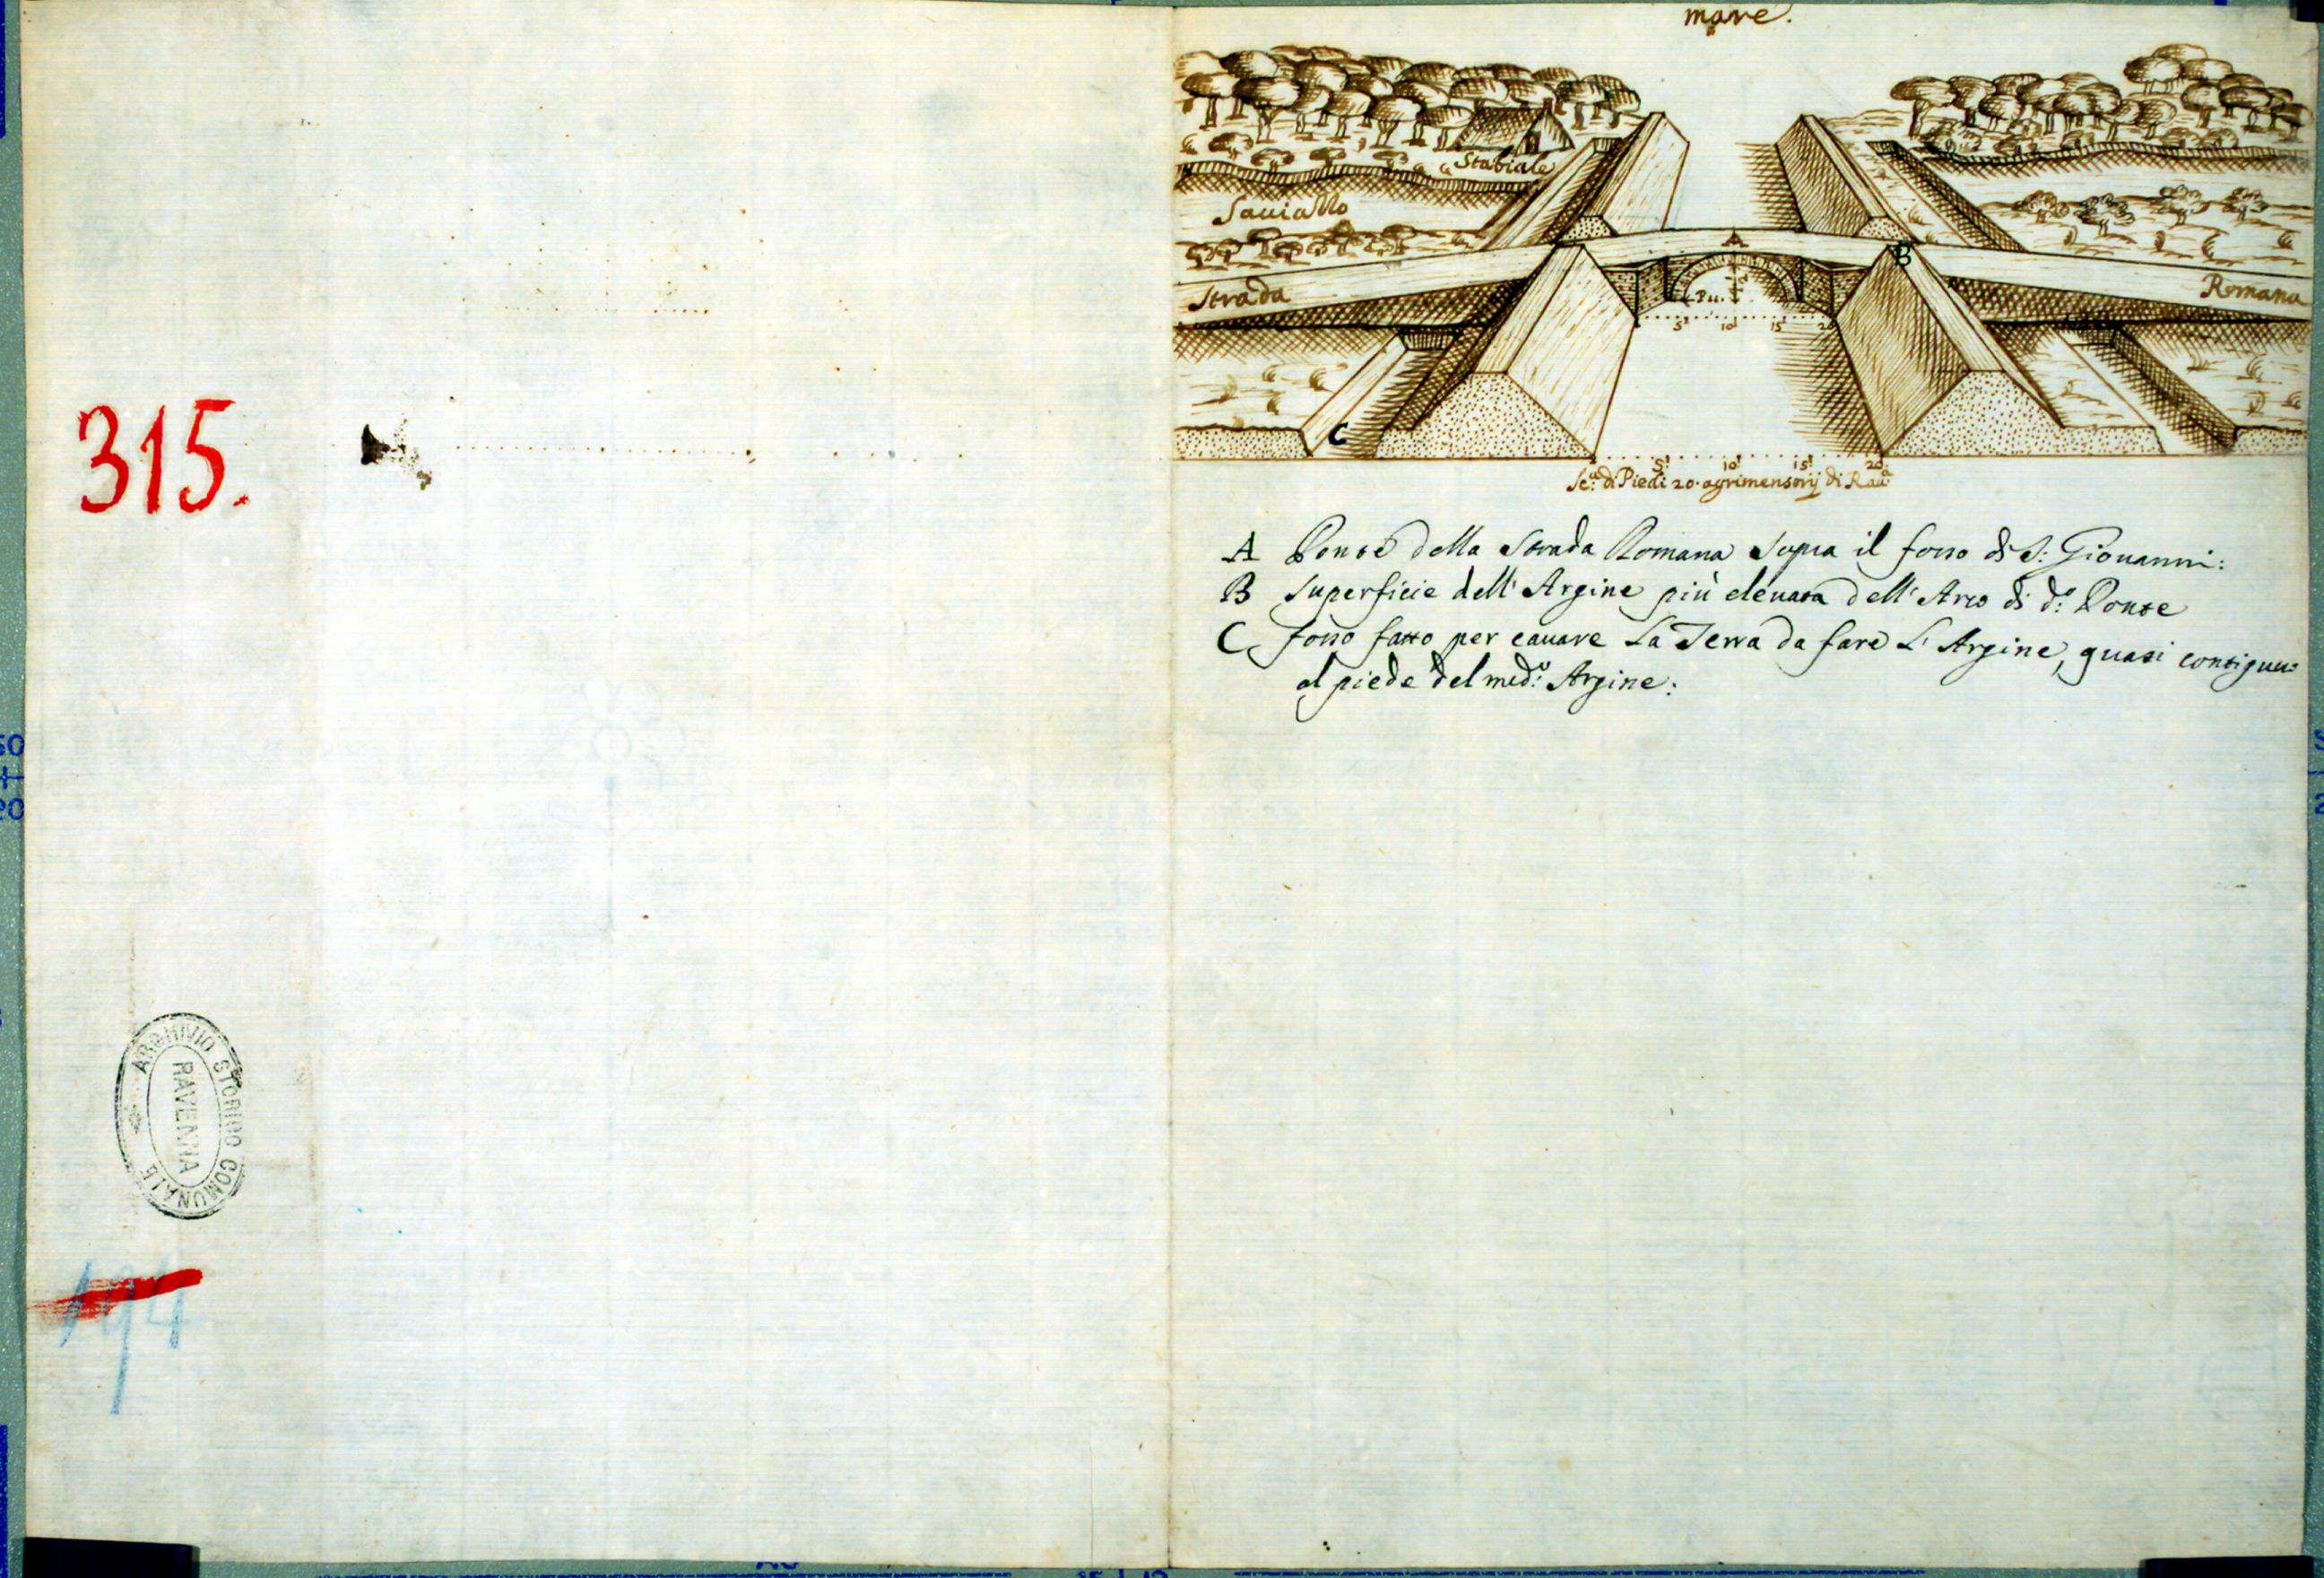 mare.
Stabiale
Sauiallo
Strada
A
B
Romana
P. 11.
5 10 15 20
C
5 10 15 20
Sc.ª di Piedi 20. agrimensorij di Rau.ª
A Ponte della Strada Romana supra il fosso di S: Giouanni:
B superficie dell' Argine più eleuata dell' Arco di d.º Ponte
C fosso fatto per cauare La Terra da fare L' Argine, quasi contiguo
al piede del med.º Argine:
315.
ARCHIVIO STORICO COMUNALE
RAVENNA
194